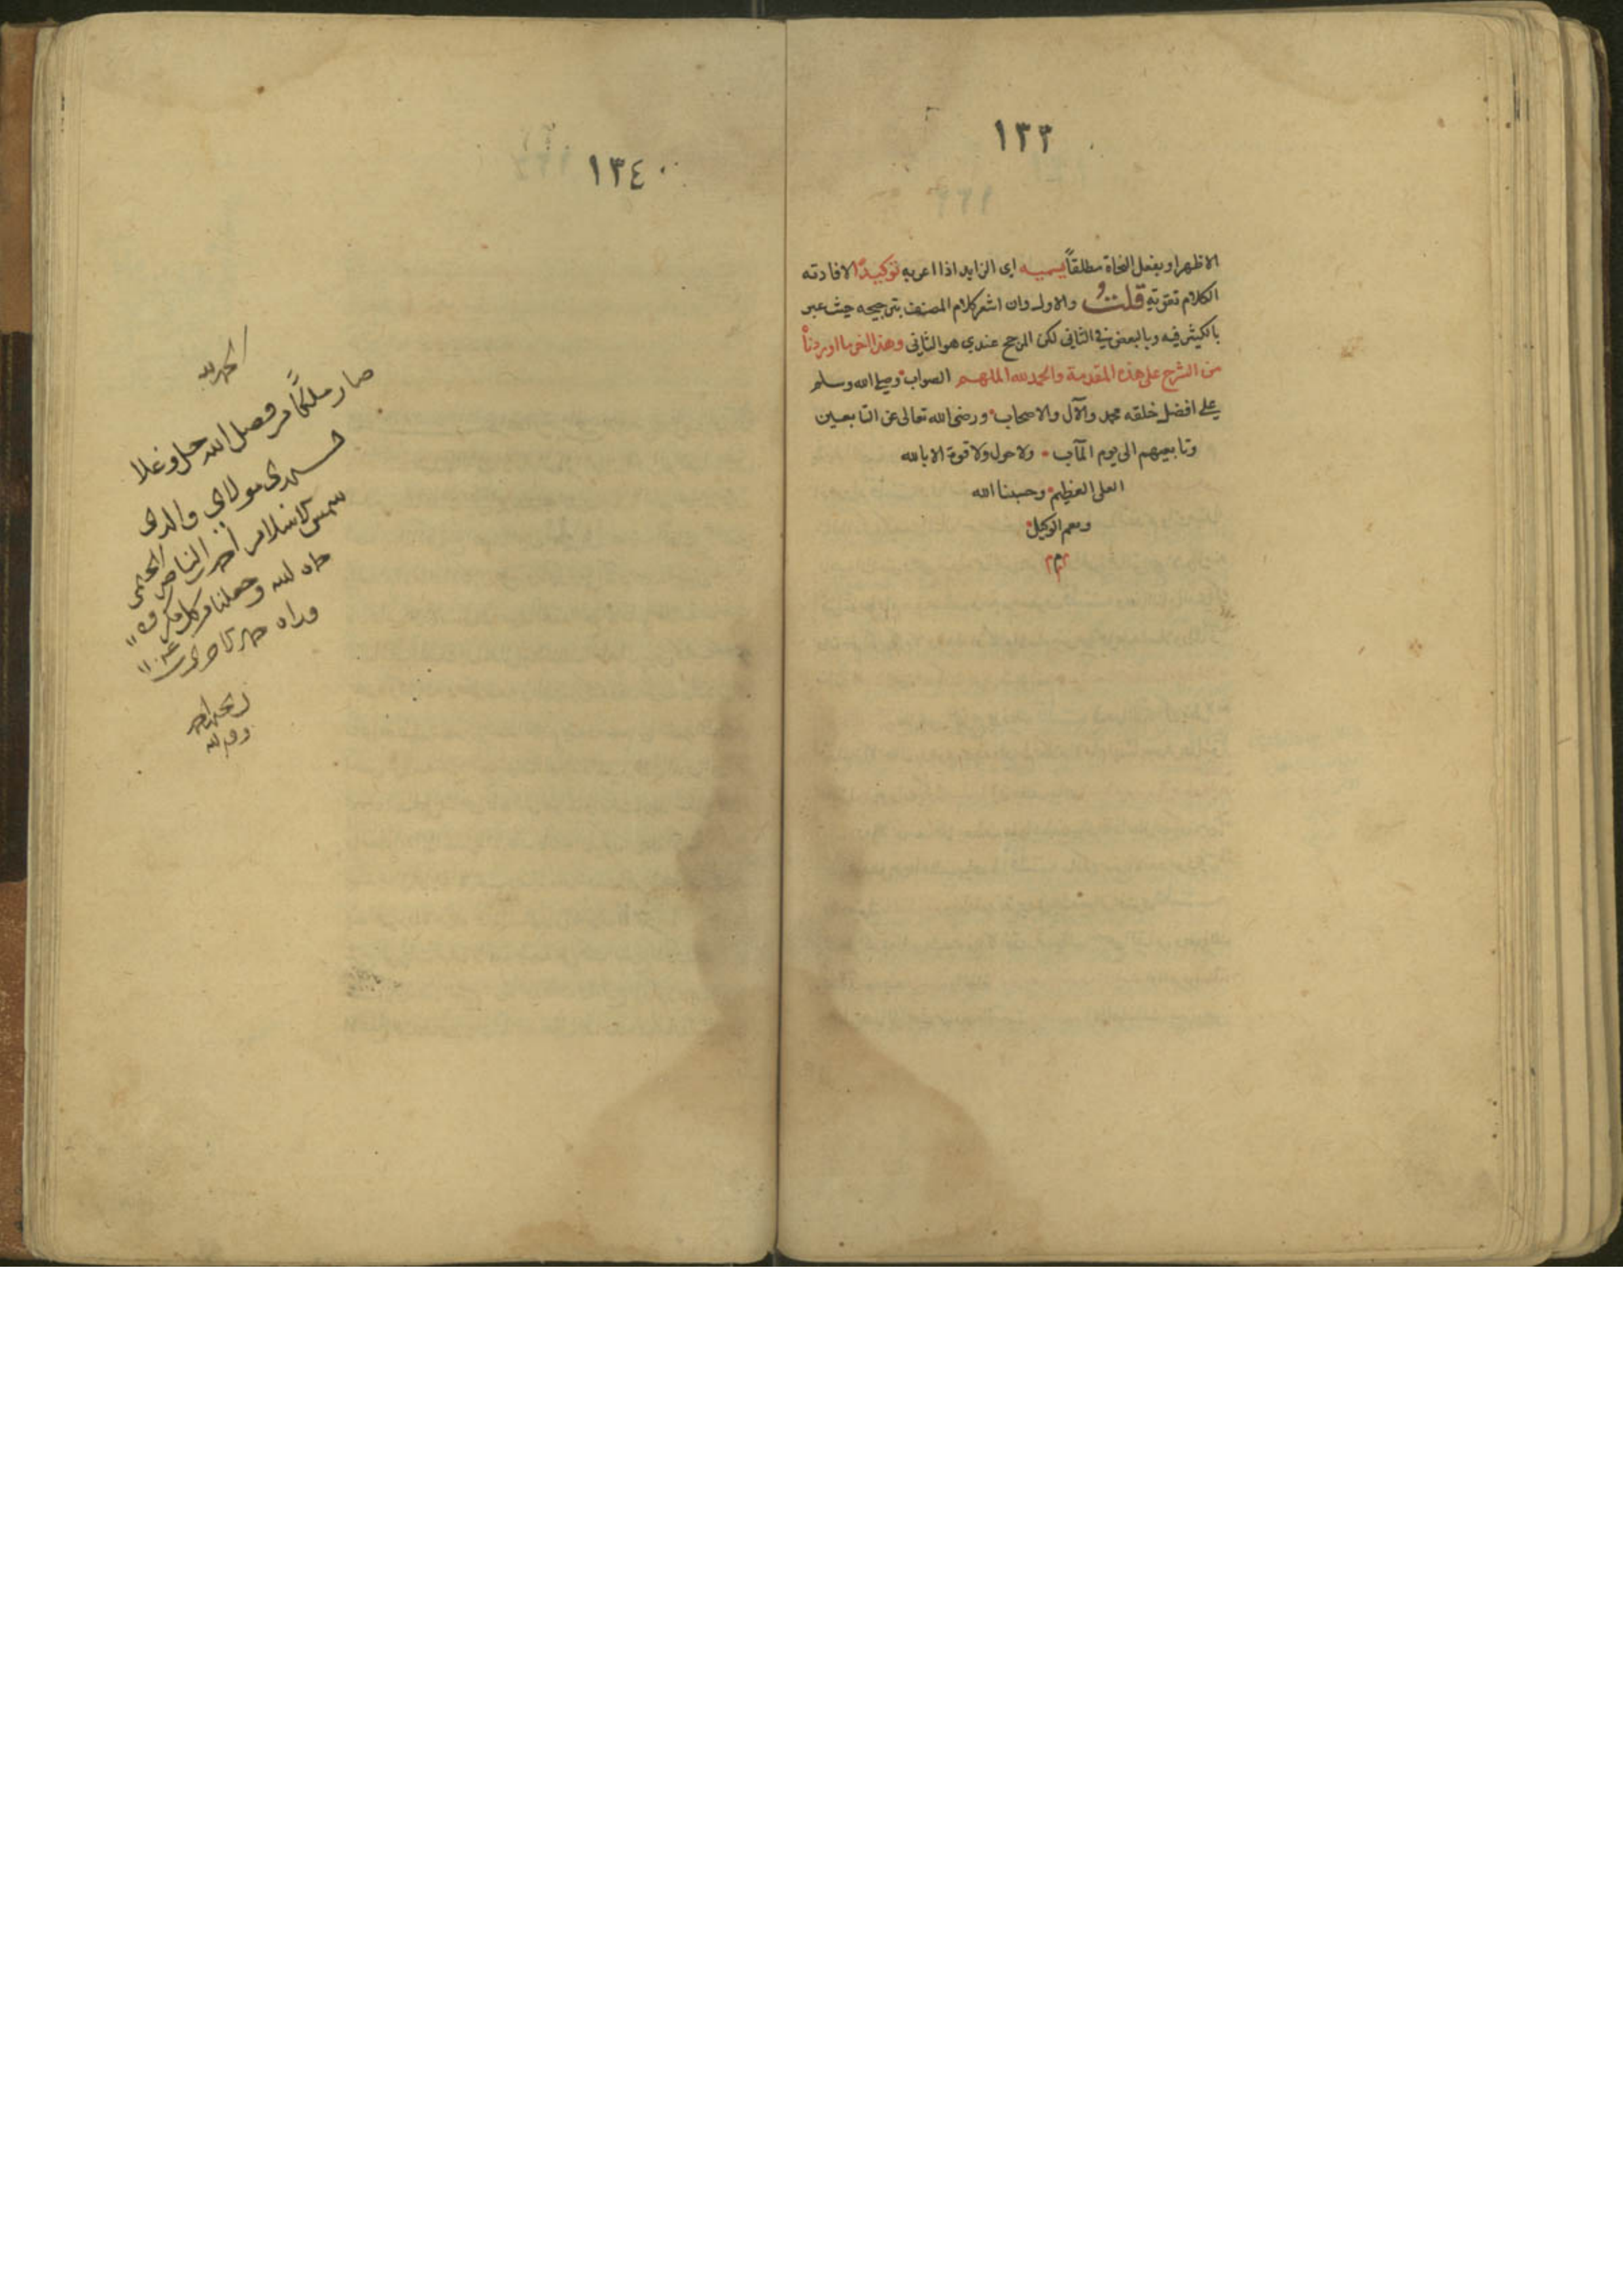 ١٣٣
الاظهر او بفعل النحاة مطلقاً يسميه اى الزايد اذا اعربه توكيدًا لافادته
الكلام تقوية قلتُ والاول وان اشعر كلام المصنف بترجيحه حيث عبر
بالكثير فيه وبالبعض فى الثانى لكن المرجح عندي هو الثانى وهذا اخر ما اوردناه
من الشرح على هذه المقدمة والحمد لله الملهم الصواب وصلى الله وسلم
على افضل خلقه محمد والآل والاصحاب ورضى الله تعالى عن التابعين
وتابعيهم الى يوم المآب ولا حول ولا قوة الا بالله
العلى العظيم وحسبنا الله
ونعم الوكيل
١٣٤
الحمد لله
صار ملكًا من فضل الله جل وعلا
لسيدى مولاى والدى
شمس الاسلام أحمد بن الناصر